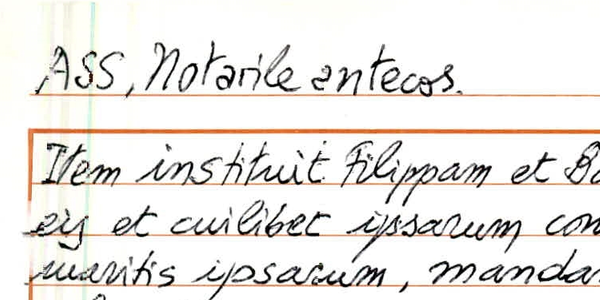 ASS, Notarile antecos.
Item instituit Filippam et Ba
eis et cuilibet ipsarum con
maritis ipsarum, manda